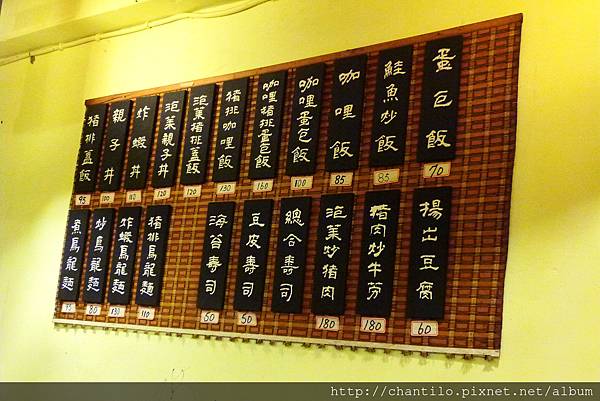 蛋包飯 70
鮭魚炒飯 85
咖哩飯 85
咖哩蛋包飯 100
咖哩豬排蛋包飯 160
豬排咖哩飯 130
泡菜豬排蓋飯 120
泡菜親子丼 120
炸蝦丼 110
親子丼 100
豬排蓋飯 95
揚出豆腐 60
豬肉炒牛蒡 180
泡菜炒豬肉 180
總合壽司
豆皮壽司 50
海苔壽司 50
豬排烏龍麵 110
炸蝦烏龍麵 130
炒烏龍麵 80
煮烏龍麵
http://chantilo.pixnet.net/album